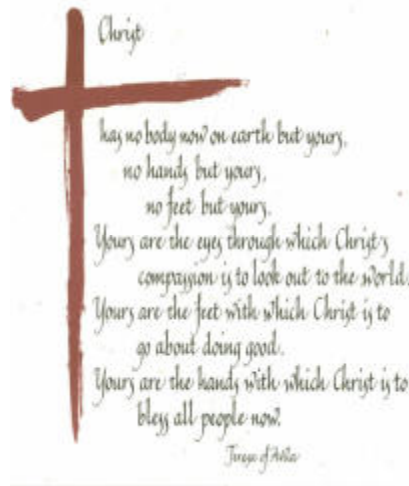 Christ
has no body now on earth but yours,
no hands but yours,
no feet but yours,
Yours are the eyes through which Christ's
compassion is to look out to the world.
Yours are the feet with which Christ is to
go about doing good.
Yours are the hands with which Christ is to
bless all people now.
Terese of Avila